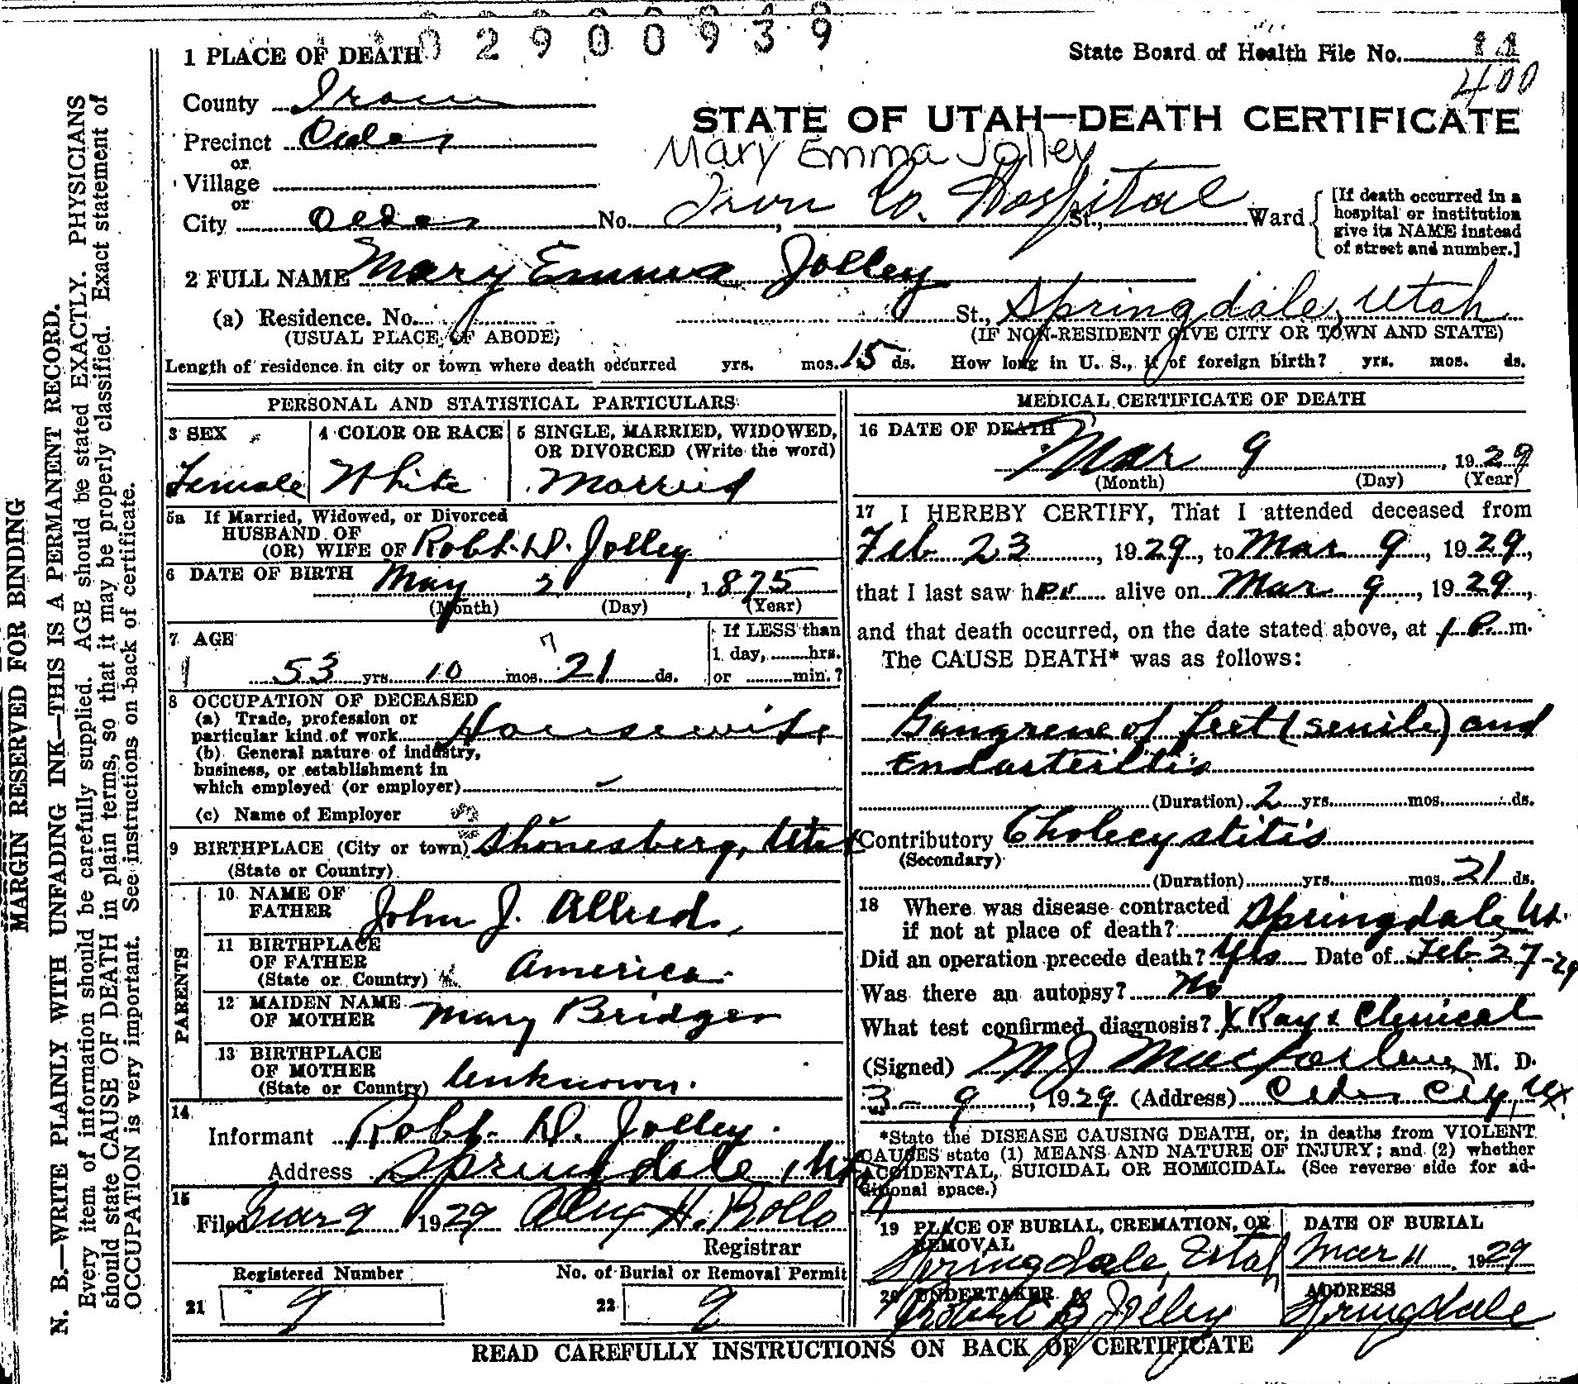 02900939
1 PLACE OF DEATH
State Board of Health File No. 11
400
County Iron
STATE OF UTAH—DEATH CERTIFICATE
Precinct Cedar
Mary Emma Jolley
or
Village
or
City Cedar No. Iron Co. Hospital St., Ward
[If death occurred in a
hospital or institution
give its NAME instead
of street and number.]
2 FULL NAME Mary Emma Jolley
(a) Residence. No. St., Springdale, Utah
(USUAL PLACE OF ABODE) (IF NON-RESIDENT GIVE CITY OR TOWN AND STATE)
Length of residence in city or town where death occurred yrs. mos. 15 ds. How long in U. S., if of foreign birth? yrs. mos. ds.
PERSONAL AND STATISTICAL PARTICULARS
3 SEX
Female
4 COLOR OR RACE
White
5 SINGLE, MARRIED, WIDOWED,
OR DIVORCED (Write the word)
Married
5a If Married, Widowed, or Divorced
HUSBAND OF
(OR) WIFE OF Robt. D. Jolley
6 DATE OF BIRTH May 2, 1875
(Month) (Day) (Year)
7 AGE
53 yrs. 10 mos. 21 ds.
7
If LESS than
1 day, hrs.
or min.?
8 OCCUPATION OF DECEASED
(a) Trade, profession or
particular kind of work Housewife
(b) General nature of industry,
business, or establishment in
which employed (or employer)
(c) Name of Employer
9 BIRTHPLACE (City or town) Shonesberg, Utah
(State or Country)
PARENTS
10 NAME OF
FATHER John J. Allred
11 BIRTHPLACE
OF FATHER
(State or Country) America
12 MAIDEN NAME
OF MOTHER Mary Bridges
13 BIRTHPLACE
OF MOTHER
(State or Country) Unknown.
14
Informant Robt. D. Jolley.
Address Springdale, Utah
15
Filed Mar 9 1929
Registrar
Registered Number
21 9
No. of Burial or Removal Permit
22 9
MEDICAL CERTIFICATE OF DEATH
16 DATE OF DEATH
Mar 9, 1929
(Month) (Day) (Year)
17 I HEREBY CERTIFY, That I attended deceased from
Feb 23, 1929, to Mar 9, 1929,
that I last saw her alive on Mar 9, 1929,
and that death occurred, on the date stated above, at 1 P. m.
The CAUSE DEATH* was as follows:
Gangrene of feet (senile) and
Endarteritis
(Duration) 2 yrs. mos. ds.
Contributory Cholecystitis
(Secondary)
(Duration) yrs. mos. 21 ds.
18 Where was disease contracted
if not at place of death? Springdale Ut.
Did an operation precede death? Yes Date of Feb 27-29
Was there an autopsy? No
What test confirmed diagnosis? X Ray & Clinical
(Signed) M J Macfarlane, M. D.
3-9, 1929 (Address) Cedar City, Ut.
*State the DISEASE CAUSING DEATH, or, in deaths from VIOLENT
CAUSES state (1) MEANS AND NATURE OF INJURY; and (2) whether
ACCIDENTAL, SUICIDAL OR HOMICIDAL. (See reverse side for ad-
ditional space.)
19 PLACE OF BURIAL, CREMATION, OR
REMOVAL
Springdale, Utah
DATE OF BURIAL
Mar 11 1929
20 UNDERTAKER
Jolley
ADDRESS
Springdale
READ CAREFULLY INSTRUCTIONS ON BACK OF CERTIFICATE
MARGIN RESERVED FOR BINDING
N. B.—WRITE PLAINLY WITH UNFADING INK—THIS IS A PERMANENT RECORD.
Every item of information should be carefully supplied. AGE should be stated EXACTLY. PHYSICIANS
should state CAUSE OF DEATH in plain terms, so that it may be properly classified. Exact statement of
OCCUPATION is very important. See instructions on back of certificate.